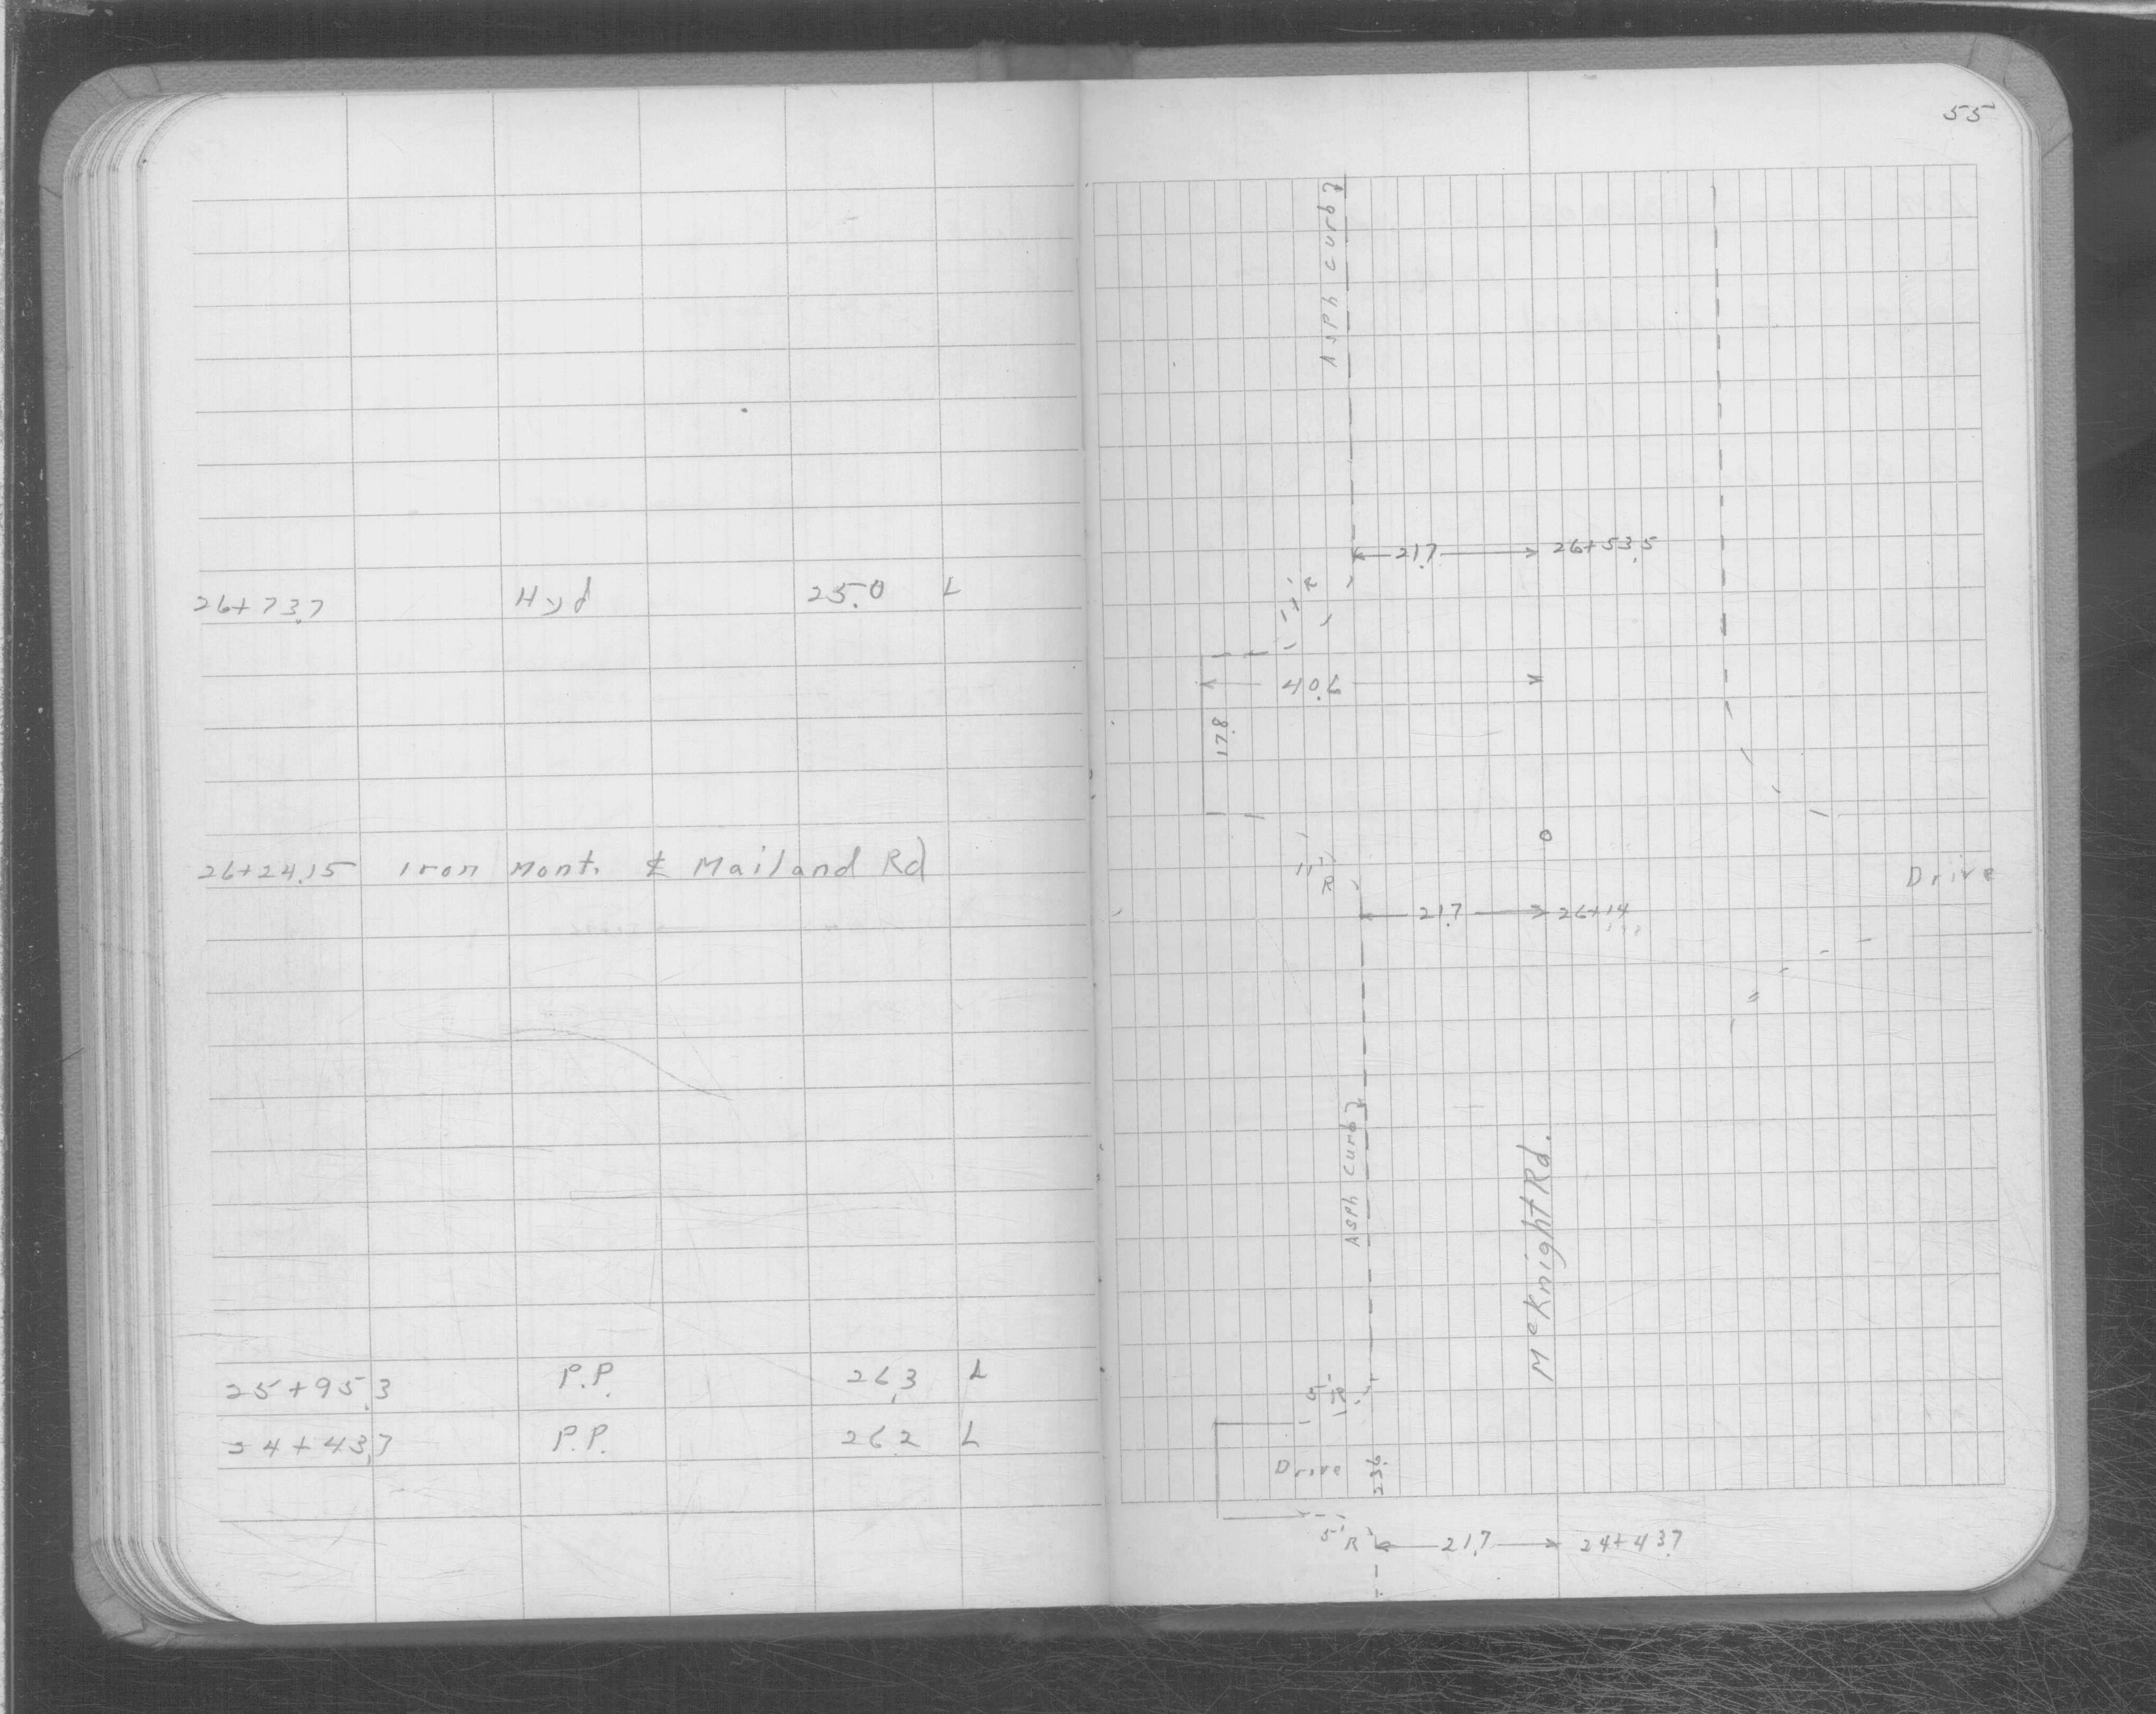 55
Asph curb
21.7 26+53.5
26+73.7 Hyd 25.0 L
11' R
40.6
17.8
26+24.15 Iron Mont. ℄ Mailand Rd
11' R
Drive
21.7 26+14
Asph curb
McKnight Rd.
25+95.3 P.P. 26.3 L
5' R
24+43.7 P.P. 26.2 L
Drive 23.6
5' R 21.7 24+43.7